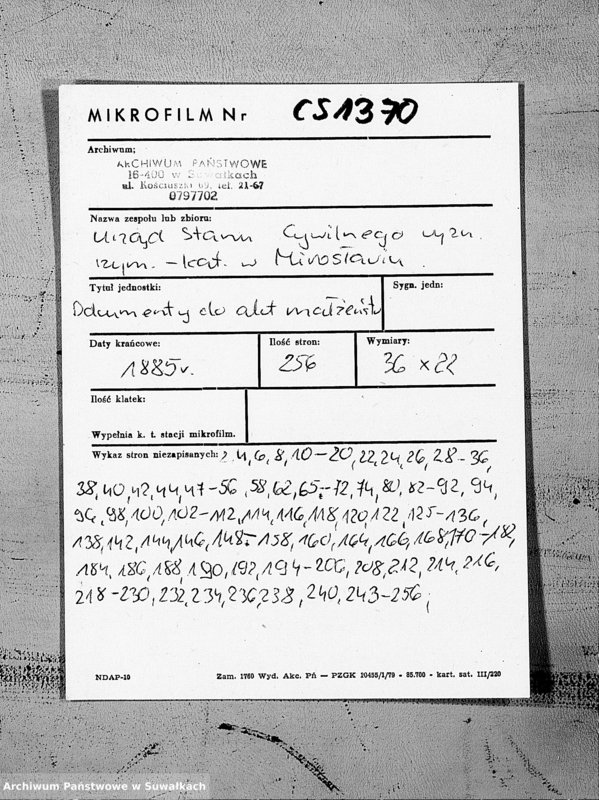 MIKROFILM Nr CS1370
Archiwum;
ARCHIWUM PAŃSTWOWE
16-400 w Suwałkach
ul. Kościuszki 69, tel. 21-67
0797702
Nazwa zespołu lub zbioru:
Urząd Stanu Cywilnego wyzn.
rzym.-kat. w Mirosławiu
Tytuł jednostki:
Sygn. jedn:
Dokumenty do akt małżeństw
Daty krańcowe:
Ilość stron:
Wymiary:
1885r.
256
36 x 22
Ilość klatek:
Wypełnia k. t. stacji mikrofilm.
Wykaz stron niezapisanych: 2, 4, 6, 8, 10-20, 22, 24, 26, 28-36,
38, 40, 42, 44, 47-56, 58, 62, 65-72, 74, 80, 82-92, 94,
96, 98, 100, 102-112, 114, 116, 118, 120, 122, 125-136,
138, 142, 144, 146, 148-158, 160, 164, 166, 168, 170-182,
184, 186, 188, 190, 192, 194-206, 208, 212, 214, 216,
218-230, 232, 234, 236, 238, 240, 243-256,
NDAP-10
Zam. 1760 Wyd. Akc. Pń — PZGK 20455/I/79 - 85.700 - kart. sat. III/220
Archiwum Państwowe w Suwałkach